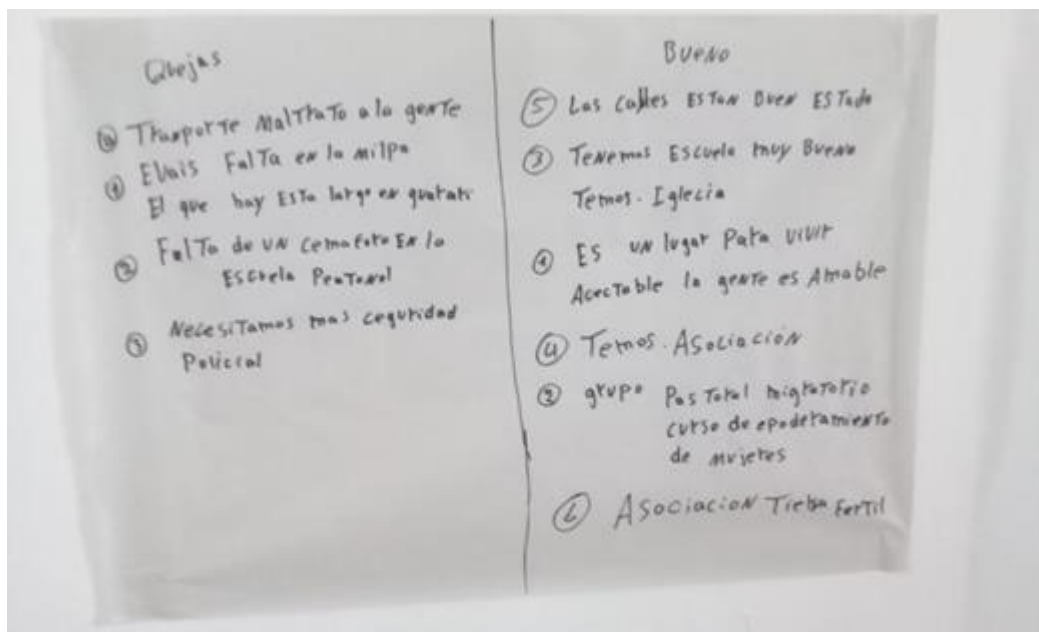 Quejas
④ Thasporte Malthato a la gente
① Ebais Falta en la milpa
El que hay Esta largo en guarari
② Falta de un cemaforo En la
Escuela Peatonal
③ Necesitamos mas ceguridad
Policial
Bueno
⑤ Las calles ESTan Buen ESTado
③ Tenemos Escuela muy Buena
Temos. Iglecia
① ES un lugar Para vivir
Acectable la gente es Amable
④ Temos. Asociación
② grupo Pastoral migratorio
curso de epoderamiento
de mujeres
⑥ Asociacion Tierra Fertil